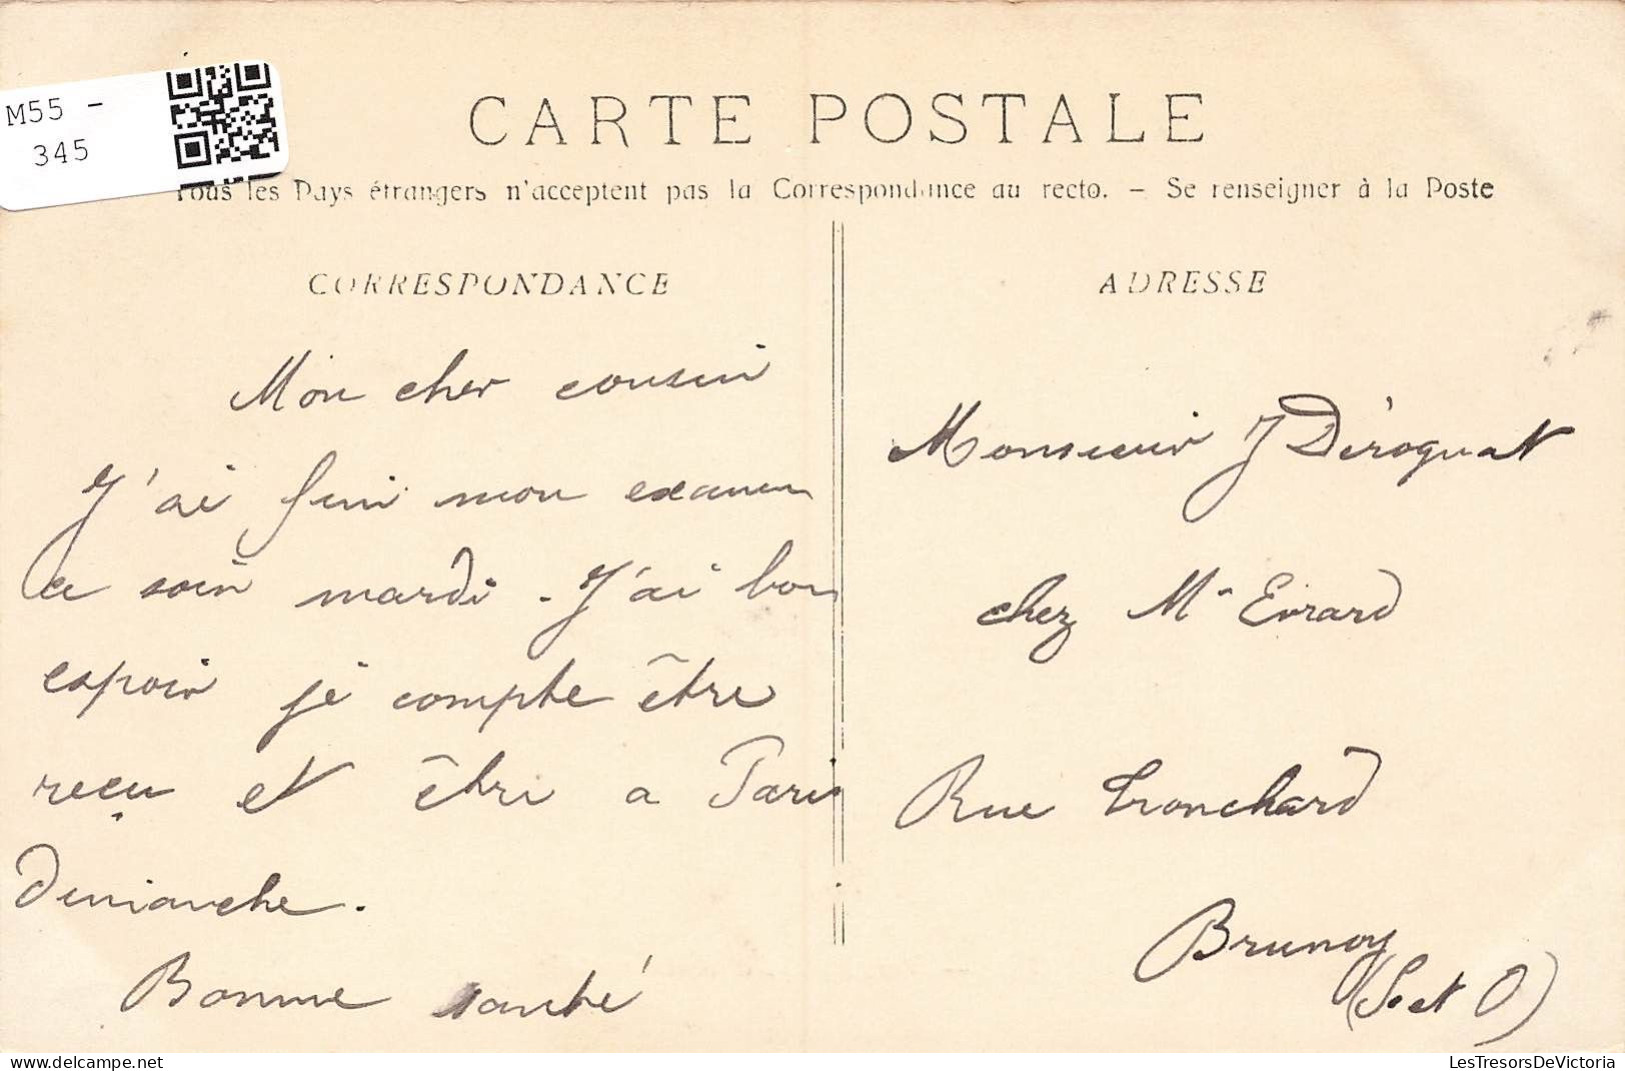 M55 -
345
CARTE POSTALE
Tous les Pays étrangers n'acceptent pas la Correspondance au recto. - Se renseigner à la Poste
CORRESPONDANCE
Mon cher cousin
J'ai fini mon examen
ce soir mardi. J'ai bon
espoir je compte être
reçu et être a Paris
Dimanche.
Bonne santé
ADRESSE
Monsieur J Déroguat
chez Mr Evrard
Rue Tronchard
Brunoy
(S. et O)
LesTresorsDeVictoria